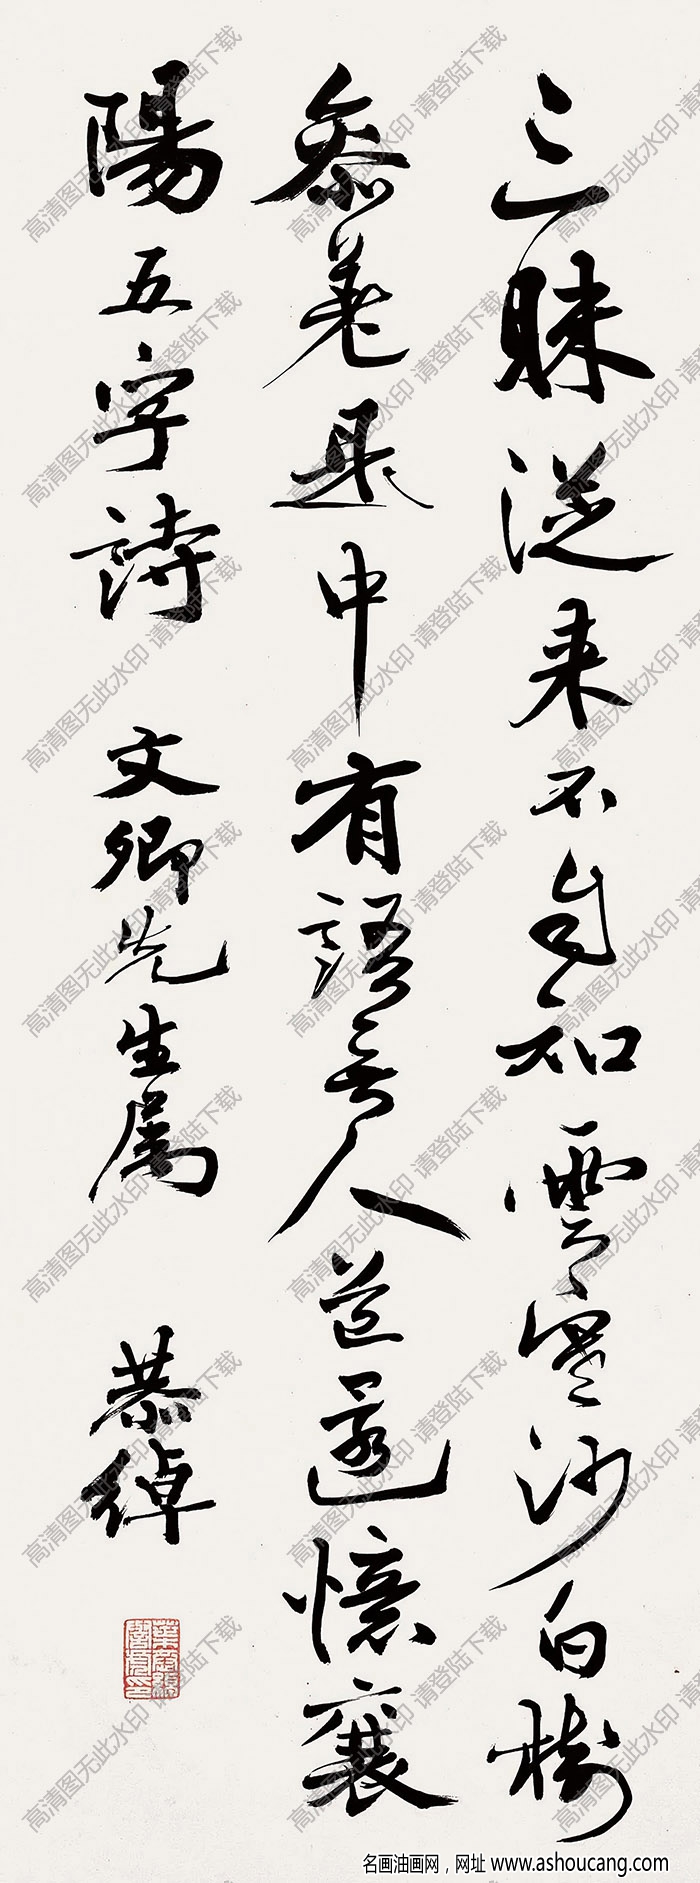 三昧從来不自知雲寒沙白樹
参差是中有語無人道還憶襄
陽五字詩 文卿先生属 恭绰
高清图无此水印 请登陆下载
名画油画网，网址 www.ashoucang.com